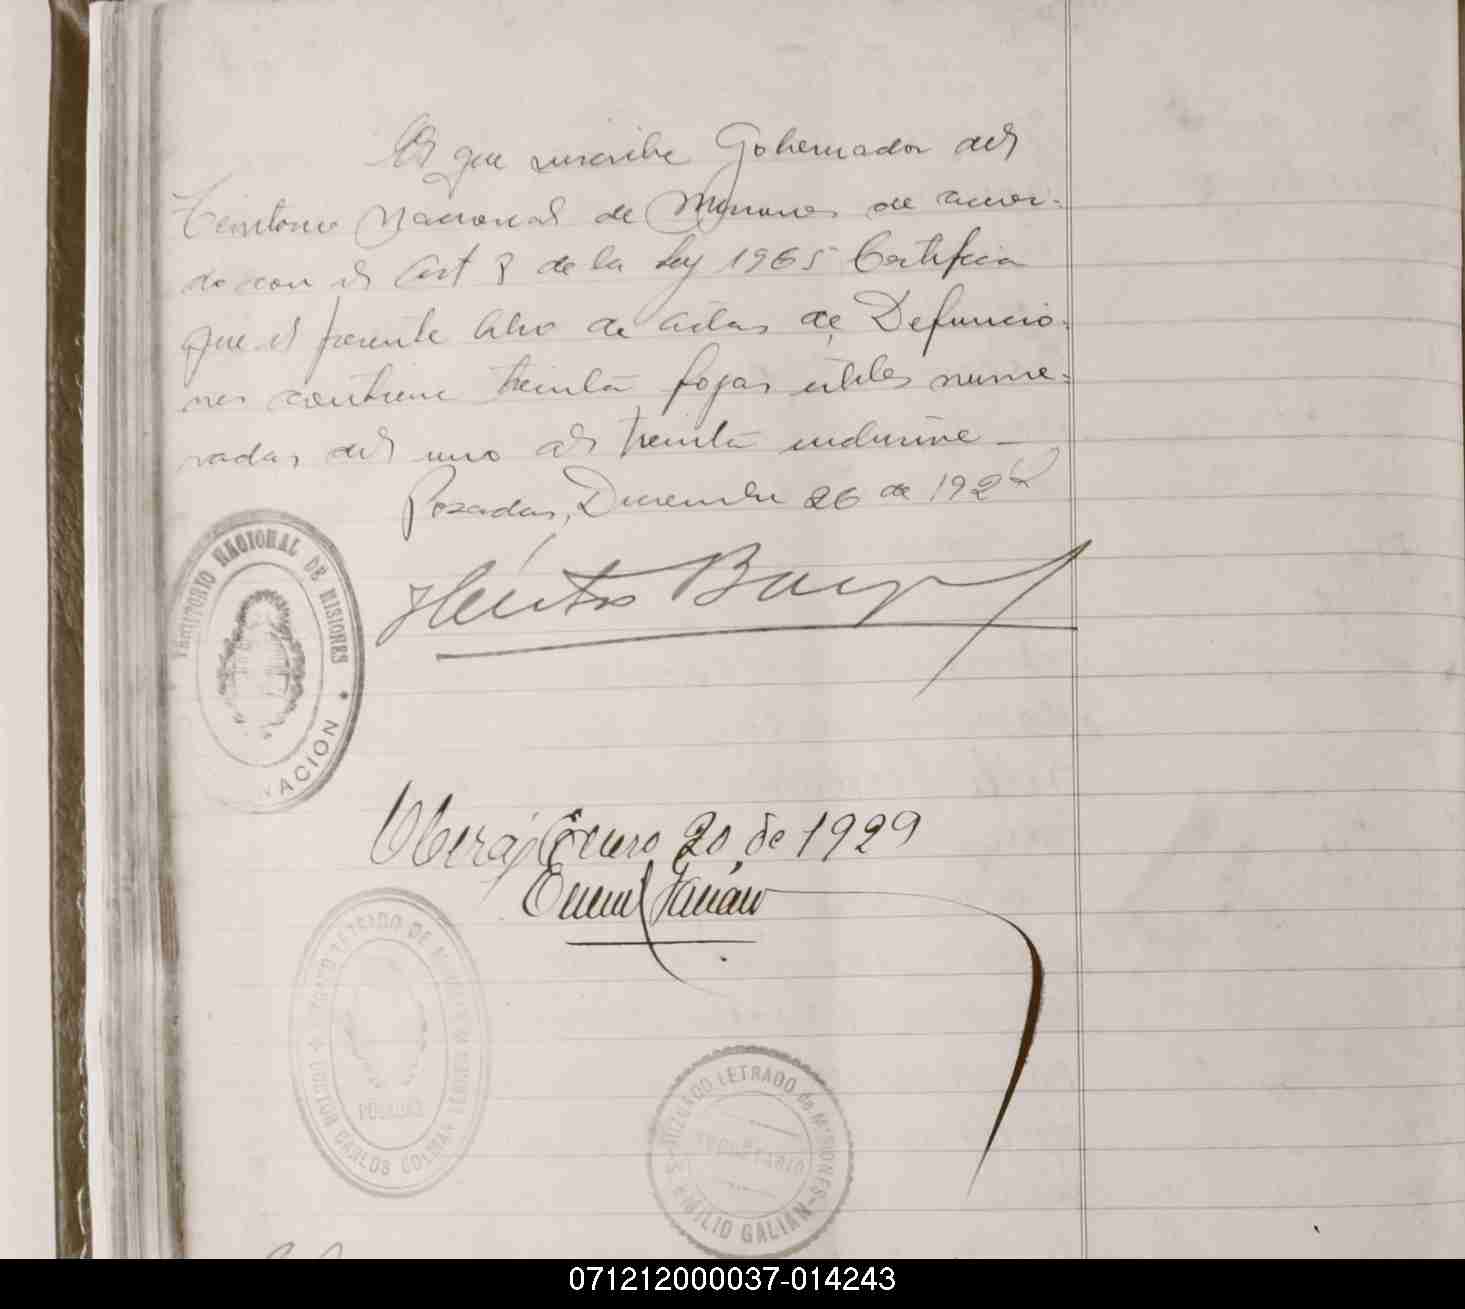 El que suscribe Gobernador del
Territorio Nacional de Misiones de acuer-
do con el Art 8 de la Ley 1965 Certifica
que el presente libro de actas de Defuncio-
nes contiene treinta fojas útiles nume-
radas del uno al treinta inclusive —
Posadas, Diciembre 26 de 192
Héctor Bar
TERRITORIO NACIONAL DE MISIONES
Oberá, Enero 20, de 1929
Emilio Galián
JUZGADO LETRADO DE
DOCTOR CARLOS
POSADAS
JUZGADO LETRADO de MISIONES
SECRETARIO
EMILIO GALIÁN
071212000037-014243